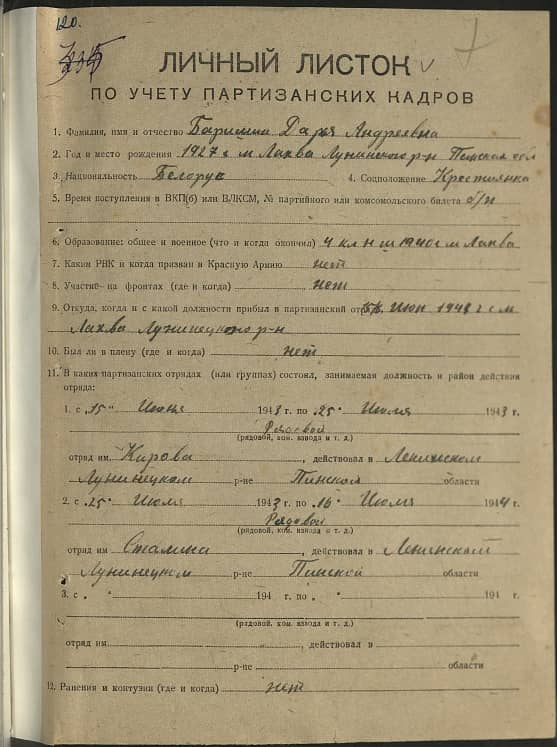 120.
7
ЛИЧНЫЙ ЛИСТОК
ПО УЧЕТУ ПАРТИЗАНСКИХ КАДРОВ
1. Фамилия, имя и отчество Дарья Андреевна
2. Год и место рождения 1927 г м Лахва Лунинского р-н Пинская обл
3. Национальность Белорус 4. Соцположение Крестьянка
5. Время поступления в ВКП(б) или ВЛКСМ, № партийного или комсомольского билета б/п
6. Образование: общее и военное (что и когда окончил) 4 кл н ш 1940 г м Лахва
7. Каким РВК и когда призван в Красную Армию нет
8. Участие на фронтах (где и когда) нет
9. Откуда, когда и с какой должности прибыл в партизанский отряд 1943 г с м
Лахва Лунинецкого р-н
10. Был ли в плену (где и когда) нет
11. В каких партизанских отрядах (или группах) состоял, занимаемая должность и район действия
отряда:
1. с „15" Июня 1943 г. по „25" Июля 1943 г.
Рядовой
(рядовой, ком. взвода и т. д.)
отряд им. Кирова действовал в Ленинском
Лунинецком р-не Пинской области
2. с „25" Июля 1943 г. по „16" Июля 1944 г.
Рядовой
(рядовой, ком. взвода и т. д.)
отряд им Сталина, действовал в Ленинском
Лунинецком р-не Пинской области
3. с „ " 194 г. по „ " 194 г.
(рядовой, ком. взвода и т. д.)
отряд им. , действовал в
р-не области
12. Ранения и контузии (где и когда) нет